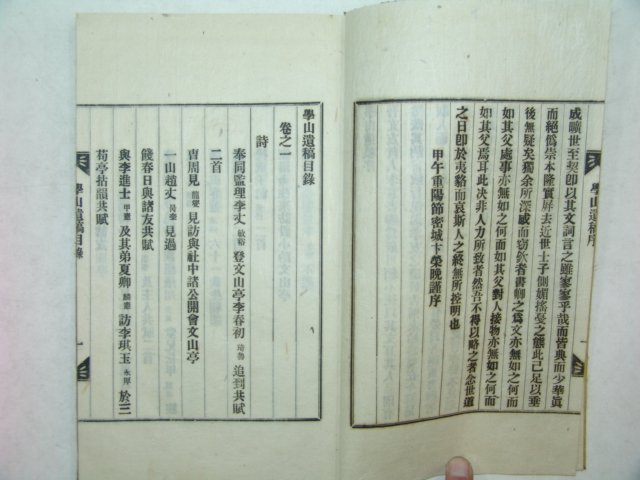 學山遺稿序
成曠世至契卽以其文詞言之雖寥寥乎哉而皆典而少華眞
而絕僞崇本隆實屛去近世士子側媚搖憂之態此已足以垂
後無疑矣獨余所深感而竊欽者書卿之爲文亦無如之何而
如其父處事亦無如之何而如其父對人接物亦無如之何而
如其父焉耳此决非人力所致者然吾不得以略之者念世道
之日卽於夷貉而哀斯人之終無所控明也
甲午重陽節密城卞榮晩謹序
學山遺稿目錄
卷之一
詩
奉同監理李丈敏裕登文山亭李春初 追到共賦
二首
曺周見 見訪與社中諸公開會文山亭
一山趙丈昺奎見過
餞春日與諸友共賦
與李進士 及其弟夏卿 訪李琪玉 於三
荀亭拈韻共賦
學山遺稿目錄
一